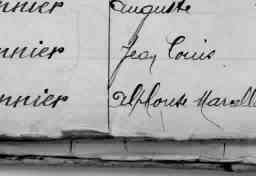 nnier Auguste
nnier Jean Louis
nnier Alphonse Marcell